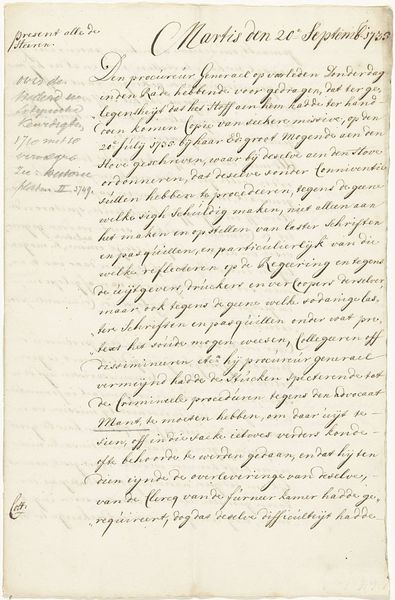 Present alle de
Heeren.
Martis den 20e Septemb. 1735
Den procureur Generael op verleden Donderdag
inden Rade hebbende voor gedragen, dat ter ge
legentheijt dat het Hoff aen hem hadde ter hand
doen komen Copie van seekere missive, op den
20e July 1730 bij haer Ed: groot Mogende aen den
Hove geschreven, waer bij deselve aen den Hove
ordonneren, dat deselve sonder Conniventie
sullen hebben te procedeeren, tegens de geene
welke sigh schuldig maken, niet alleen aen
het maken en opstellen van laster Schriften
en pasquillen, en particulierlijk van die
welke reflecteren op de Regeering en tegens
de uijtgevers, druckers en vercoopers derselver,
maer ook tegens de geene welke sodanige las„
„ter Schriften en pasquillen onder wat pre„
„text het soude mogen weesen, Collegeren off
dissimineren etca. hij procureur generael
vermeijnd hadde de Stucken specterende tot
de Criminele procedure tegens den advocaat
Mant, te moeten hebben, om daer uijt te
sien, off in die saeke ietwes verders konde
ofte behoorde te werden gedaen, en dat hij ten
dien eijnde de overleveringe van deselve,
van de Clercq van de furneer kamer hadde ge„
„requireert, dog dat deselve difficulteijt hadde